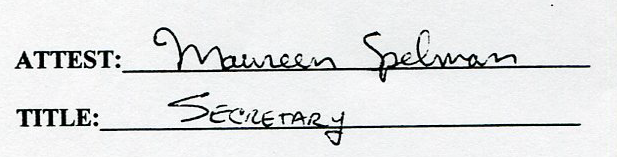 ATTEST: Maureen Spelman
TITLE: Secretary